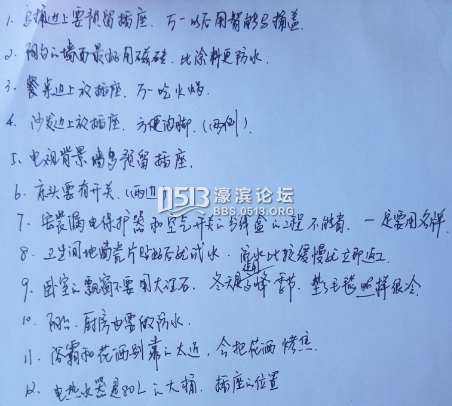 1. 马桶边上要预留插座, 万一以后用智能马桶盖.
2. 阳台的墙面最好用磁砖, 比涂料更防水.
3. 餐桌边上放插座, 万一吃火锅.
4. 沙发边上放插座, 方便 (两侧).
5. 电视背景墙多预留插座.
6. 床头要有开关. (两边
0513 濠滨论坛
BBS.0513.ORG
7. 安装漏电保护器和空气开关的分线盒的工程不能省. 一定要用名牌
8. 卫生间地面瓷片贴好后先试水. 水比较缓慢就立即返工
9. 卧室的飘窗不要用大理石, 冬天 季节, 垫了毛毯照样很冷
10. 阳台, 厨房也要做防水.
11. 浴霸和花洒别靠的太近, 会把花洒烤焦.
12. 电热水器是80L的大桶, 插座的位置